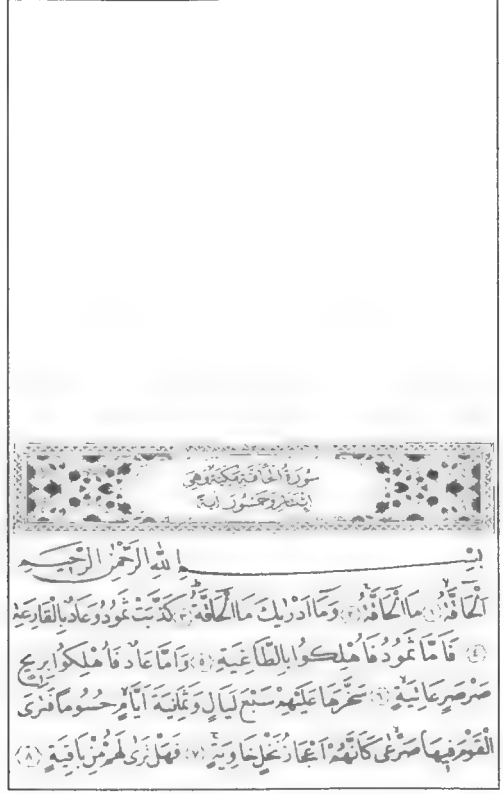 سُورَةُ الْحَاقَّةِ مَكِّيَّةٌ وَهِيَ
اِثْنَتَانِ وَخَمْسُونَ اٰيَةً
بِسْمِ اللّٰهِ الرَّحْمٰنِ الرَّحِيمِ
اَلْحَاقَّةُ ﴿١﴾ مَا الْحَاقَّةُ ﴿٢﴾ وَمَا اَدْرٰيكَ مَا الْحَاقَّةُ ﴿٣﴾ كَذَّبَتْ ثَمُودُ وَعَادٌ بِالْقَارِعَةِ
﴿٤﴾ فَاَمَّا ثَمُودُ فَاُهْلِكُوا بِالطَّاغِيَةِ ﴿٥﴾ وَاَمَّا عَادٌ فَاُهْلِكُوا بِرِيحٍ
صَرْصَرٍ عَاتِيَةٍ ﴿٦﴾ سَخَّرَهَا عَلَيْهِمْ سَبْعَ لَيَالٍ وَثَمَانِيَةَ اَيَّامٍ حُسُومًا فَتَرَى
الْقَوْمَ فِيهَا صَرْعٰى كَاَنَّهُمْ اَعْجَازُ نَخْلٍ خَاوِيَةٍ ﴿٧﴾ فَهَلْ تَرٰى لَهُمْ مِنْ بَاقِيَةٍ ﴿٨﴾